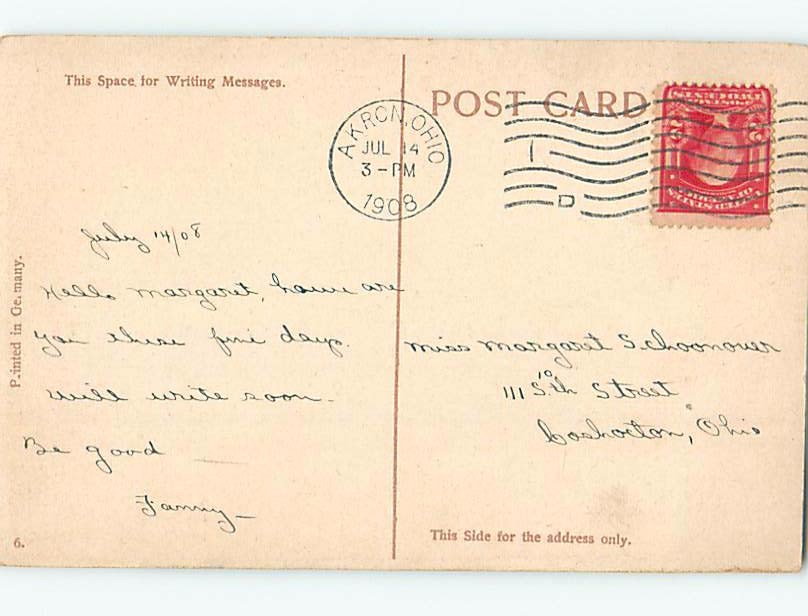 This Space for Writing Messages.
POST CARD
AKRON, OHIO
JUL 14
3-PM
1908
D
July 14/08
Hello Margaret, how are
you these fine days.
Will write soon.
Be good
Fanny
Miss Margaret Schoonover
111 S. 10th Street
Coshocton, Ohio
Printed in Germany.
6.
This Side for the address only.